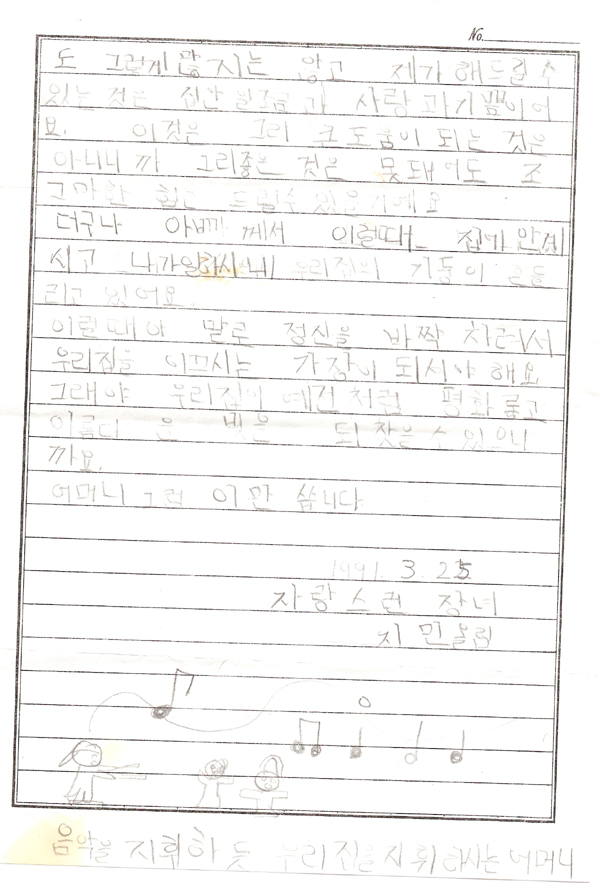 No.
도 그렇게 많지는 않고 제가 해드릴 수
있는 것은 집안 일조금 과 사랑 과 기쁨이어
요. 이것은 그리 큰 도움이 되는 것은
아니니까 그리좋은 것은 못돼어도 조
그마한 힘은 드릴수 있을거에요
더구나 아빠께서 이럴때 집에 안계
시고 나가일하시니 우리집의 기둥이 흔들
리고 있어요.
이럴때야 말로 정신을 바짝 차려서
우리집을 이끄시는 가장이 되시야 해요
그래야 우리집이 예전처럼 평화롭고
아름다 운 빛을 되 찾을 수 있으니
까요.
어머니 그럼 이만 씁니다
1991. 3 25
자랑스런 장녀
지민 올림
음악을 지휘하 듯 우리집을 지휘하시는 어머니